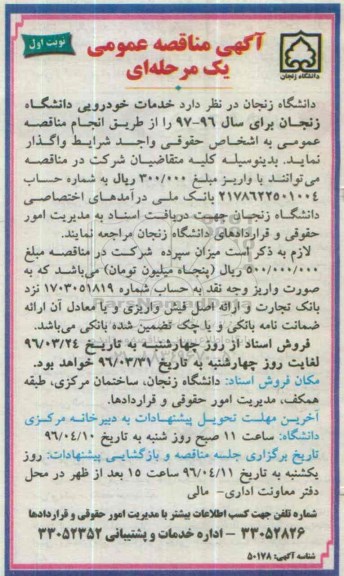 آگهی مناقصه عمومی
یک مرحله‌ای
نوبت اول
دانشگاه زنجان
دانشگاه زنجان در نظر دارد خدمات خودرویی دانشگاه
زنجان برای سال ۹۶-۹۷ را از طریق انجام مناقصه
عمومی به اشخاص حقوقی واجد شرایط واگذار
نماید. بدینوسیله کلیه متقاضیان شرکت در مناقصه
می‌توانند با واریز مبلغ ۳۰۰/۰۰۰ ریال به شماره حساب
۲۱۷۸۶۲۲۵۰۱۰۰۴ بانک ملی درآمدهای اختصاصی
دانشگاه زنجان جهت دریافت اسناد به مدیریت امور
حقوقی و قراردادهای دانشگاه زنجان مراجعه نمایند.
لازم به ذکر است میزان سپرده شرکت در مناقصه مبلغ
۵۰۰/۰۰۰/۰۰۰ ریال (پنجاه میلیون تومان) می‌باشد که به
صورت واریز وجه نقد به حساب شماره ۱۷۰۳۰۵۱۸۱۹ نزد
بانک تجارت و ارائه اصل فیش واریزی و یا معادل آن ارائه
ضمانت نامه بانکی و یا چک تضمین شده بانکی می‌باشد.
فروش اسناد از روز چهارشنبه به تاریخ ۹۶/۰۳/۲۴
لغایت روز چهارشنبه به تاریخ ۹۶/۰۳/۳۱ خواهد بود.
مکان فروش اسناد: دانشگاه زنجان، ساختمان مرکزی، طبقه
همکف، مدیریت امور حقوقی و قراردادها.
آخرین مهلت تحویل پیشنهادات به دبیرخانه مرکزی
دانشگاه: ساعت ۱۱ صبح روز شنبه به تاریخ ۹۶/۰۴/۱۰
تاریخ برگزاری جلسه مناقصه و بازگشایی پیشنهادات: روز
یکشنبه به تاریخ ۹۶/۰۴/۱۱ ساعت ۱۵ بعد از ظهر در محل
دفتر معاونت اداری- مالی
شماره تلفن جهت کسب اطلاعات بیشتر با مدیریت امور حقوقی و قراردادها
۳۳۰۵۲۸۲۶ – اداره خدمات و پشتیبانی ۳۳۰۵۲۳۵۲
شناسه آگهی: ۵۰۱۷۸